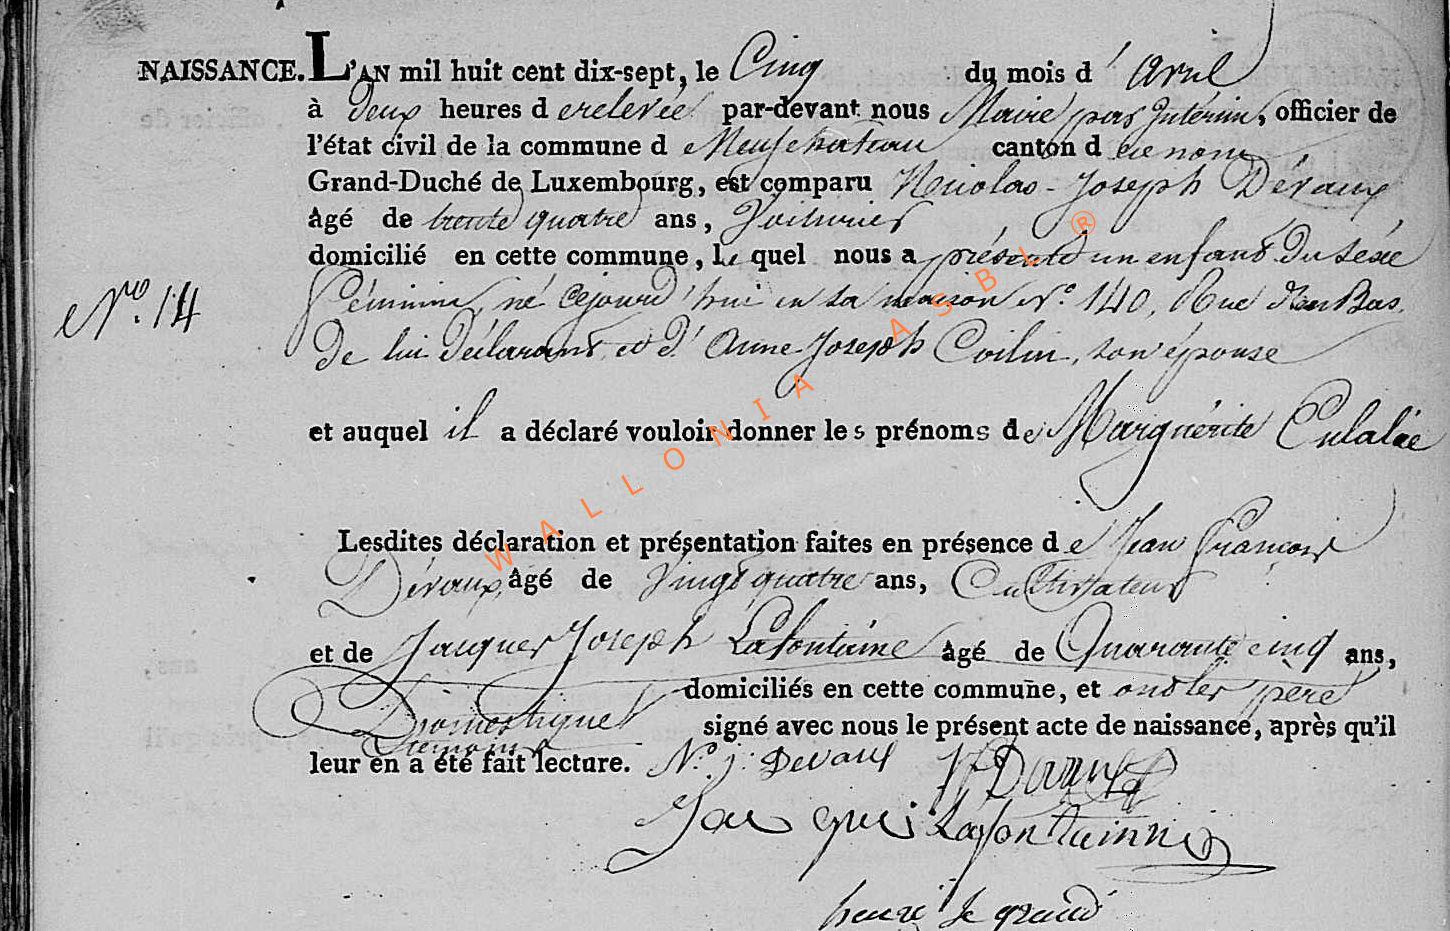 NAISSANCE. L'AN mil huit cent dix-sept, le Cinq du mois d'avril
à deux heures de relevée par-devant nous Maire par Interim, officier de
l'état civil de la commune de Neufchateau canton de ce nom
Grand-Duché de Luxembourg, est comparu Nicolas-Joseph Dévaux
âgé de trente quatre ans, Voiturier
domicilié en cette commune, lequel nous a présenté un enfant du sexe
Féminin, né cejourd'hui en sa maison N.o 140, Rue d'en Bas.
De lui Déclarant et d'Anne-Joseph Coilin, son épouse
N.ro 14
et auquel il a déclaré vouloir donner les prénoms de Marguérite Eulalie
Lesdites déclaration et présentation faites en présence de Jean François
Dévaux, âgé de Vingt quatre ans, Cultivateur
et de Jacques Joseph Lafontaine âgé de Quarante cinq ans,
Domestique domiciliés en cette commune, et ont les père
témoins signé avec nous le présent acte de naissance, après qu'il
leur en a été fait lecture. N.o j: Devaux JF Devaux
Jacques Lafontainne
henri le grand
WALLONIA ASBL ®